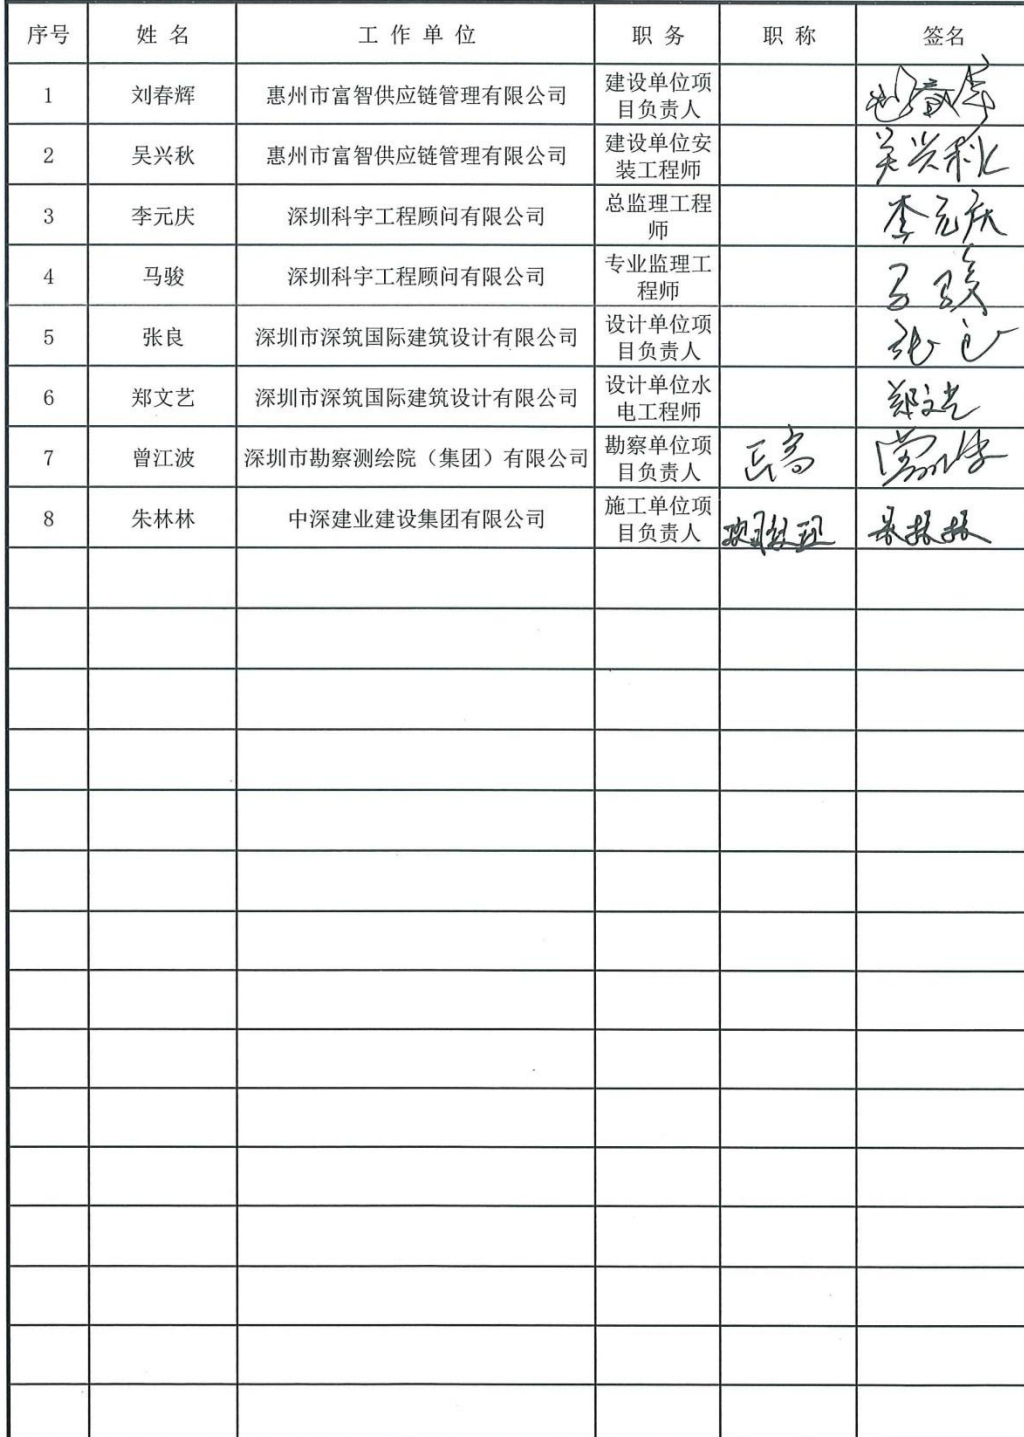 序号 姓 名 工 作 单 位 职 务 职 称 签名
1 刘春辉 惠州市富智供应链管理有限公司 建设单位项目负责人 刘春辉
2 吴兴秋 惠州市富智供应链管理有限公司 建设单位安装工程师 吴兴秋
3 李元庆 深圳科宇工程顾问有限公司 总监理工程师 李元庆
4 马骏 深圳科宇工程顾问有限公司 专业监理工程师 马骏
5 张良 深圳市深筑国际建筑设计有限公司 设计单位项目负责人 张良
6 郑文艺 深圳市深筑国际建筑设计有限公司 设计单位水电工程师 郑文艺
7 曾江波 深圳市勘察测绘院（集团）有限公司 勘察单位项目负责人 正高
8 朱林林 中深建业建设集团有限公司 施工单位项目负责人 项目经理